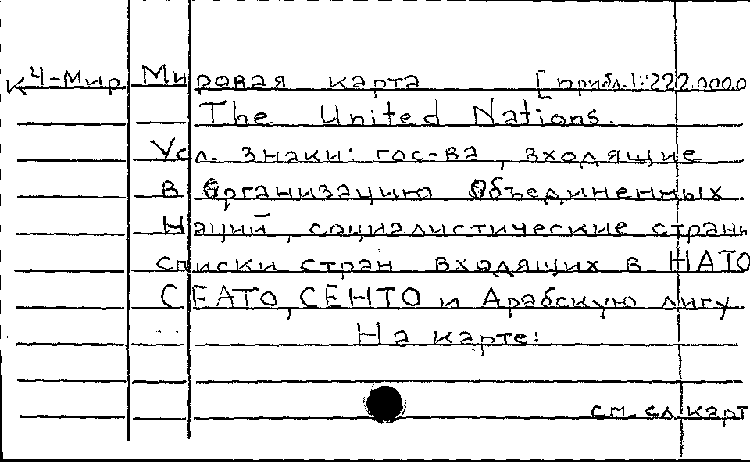 К4-Мир Мировая карта [прибл. 1:222.000.0
The United Nations.
Усл. знаки: гос-ва, входящие
в Организацию Объединенных
Наций, социалистические страны
списки стран входящих в НАТО
СЕАТО, СЕНТО и Арабскую лигу
На карте:
см. сл. карт